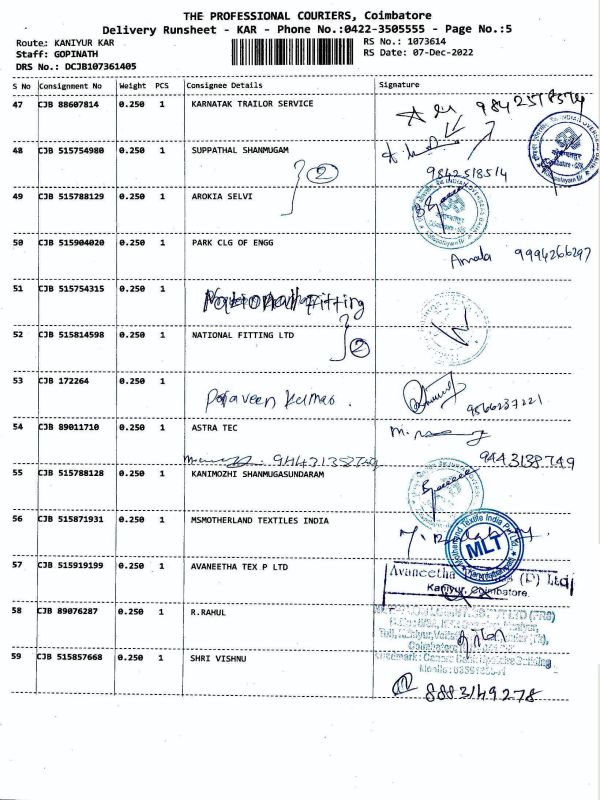 THE PROFESSIONAL COURIERS, Coimbatore
Delivery Runsheet - KAR - Phone No.:0422-3505555 - Page No.:5
Route: KANIYUR KAR
Staff: GOPINATH
DRS No.: DCJB107361405
RS No.: 1073614
RS Date: 07-Dec-2022
S No Consignment No Weight PCS Consignee Details Signature
47 CJB 88607814 0.250 1 KARNATAK TRAILOR SERVICE
48 CJB 515754980 0.250 1 SUPPATHAL SHANMUGAM
9842518514
2
49 CJB 515788129 0.250 1 AROKIA SELVI
50 CJB 515904020 0.250 1 PARK CLG OF ENGG
Amala 9994266297
51 CJB 515754315 0.250 1
National Fitting
52 CJB 515814598 0.250 1 NATIONAL FITTING LTD
2
53 CJB 172264 0.250 1
Praveen Kumar.
9566237221
54 CJB 89011710 0.250 1 ASTRA TEC
9443138749
55 CJB 515788128 0.250 1 KANIMOZHI SHANMUGASUNDARAM
56 CJB 515871931 0.250 1 MSMOTHERLAND TEXTILES INDIA
Motherland Textile India Pvt Ltd
MLT
57 CJB 515919199 0.250 1 AVANEETHA TEX P LTD
Avaneetha (P) Ltd
Kaniyur, Coimbatore.
58 CJB 89076287 0.250 1 R.RAHUL
59 CJB 515857668 0.250 1 SHRI VISHNU
8883149278